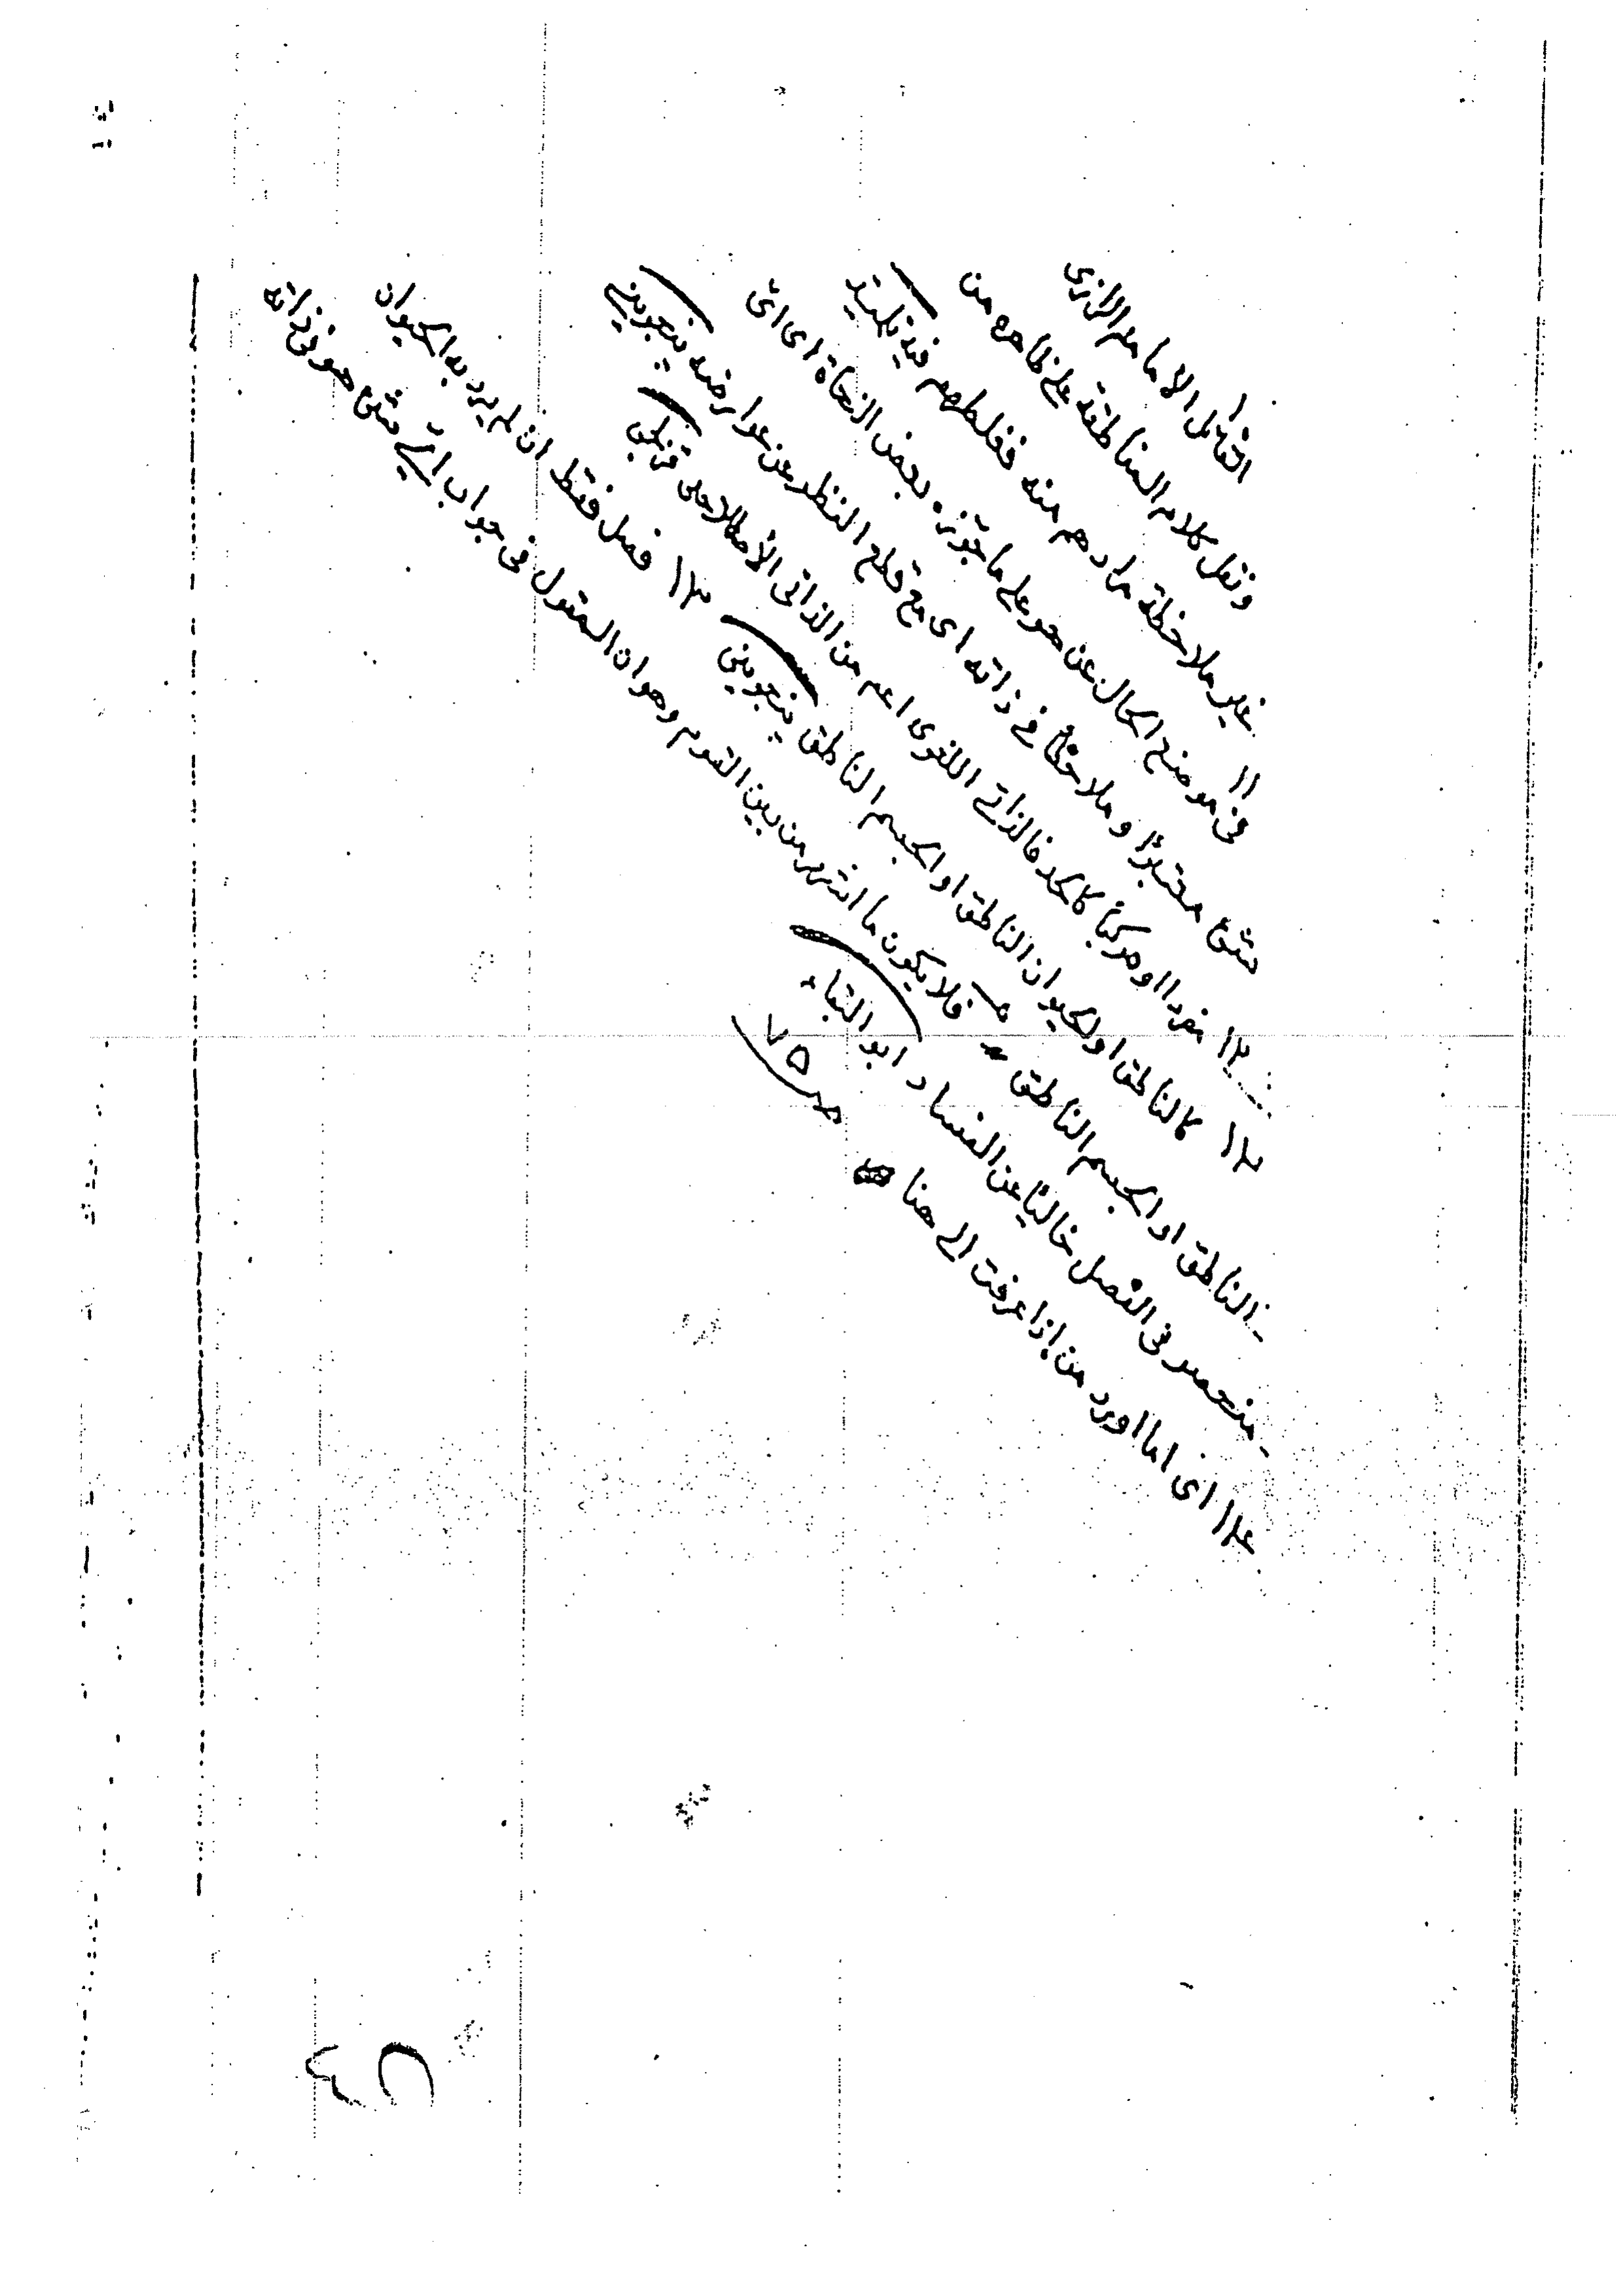 القائل الامام الرازى
ونقل كلام المناطقة على ظاهره من
غير ملاحظة مرادهم منه فغلطهم فيه
١١ فى موضع الحال عن هو على ما جوّزه بعض النحاة اى اىّ
شئ معتبرًا وملاحظًا فى ذاته اى مع قطع النظر عن عوارضه ينجوينى
١٢ مفردا او مركبًا كالحد فالذاتى اللغوى اعم من الذاتى الاصطلاحى قزلجى
١٣ كالناطق او الحيوان الناطق او الجسم الناطق ينجوينى ١٣ فصل فقط ان لم يرد به الحيوان
الناطق او الجسم الناطق فلا يكون ما اشتهر من بين القوم وهو ان المقول فى جواب اىّ شئ هو فى ذاته
منحصر فى الفصل خاليًا عن الفساد ابو البقاء
١٤ اى اما اورد من اذا عرفت الى هنا
صـ ٧٥
٤